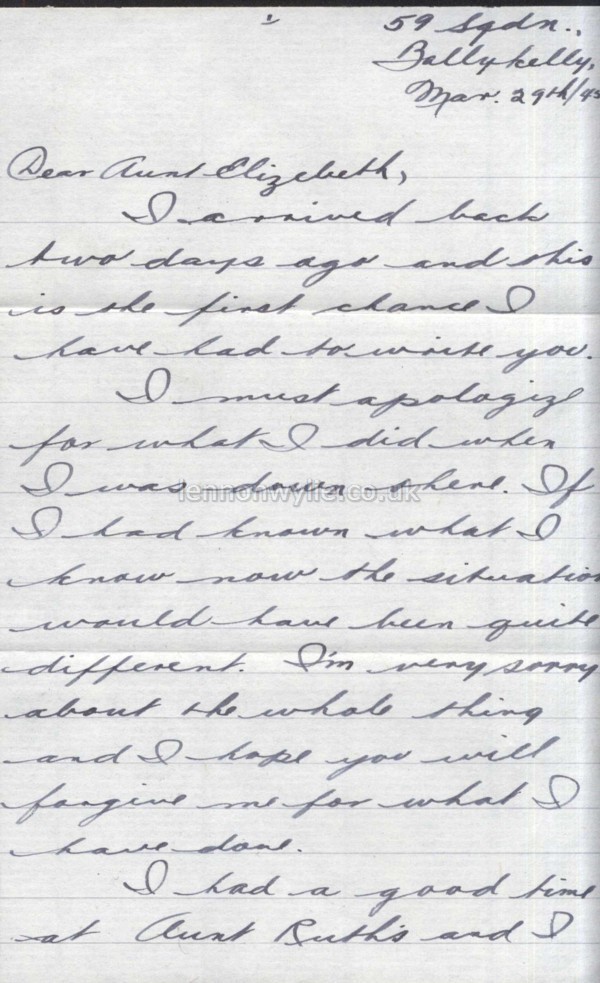 59 Sqdn.,
Ballykelly,
Mar. 29th/45
Dear Aunt Elizebeth,
I arrived back
two days ago and this
is the first chance I
have had to write you.
I must apologize
for what I did when
I was down there. If
lennonwylie.co.uk
I had known what I
know now the situation
would have been quite
different. I'm very sorry
about the whole thing
and I hope you will
forgive me for what I
have done.
I had a good time
at Aunt Ruth's and I